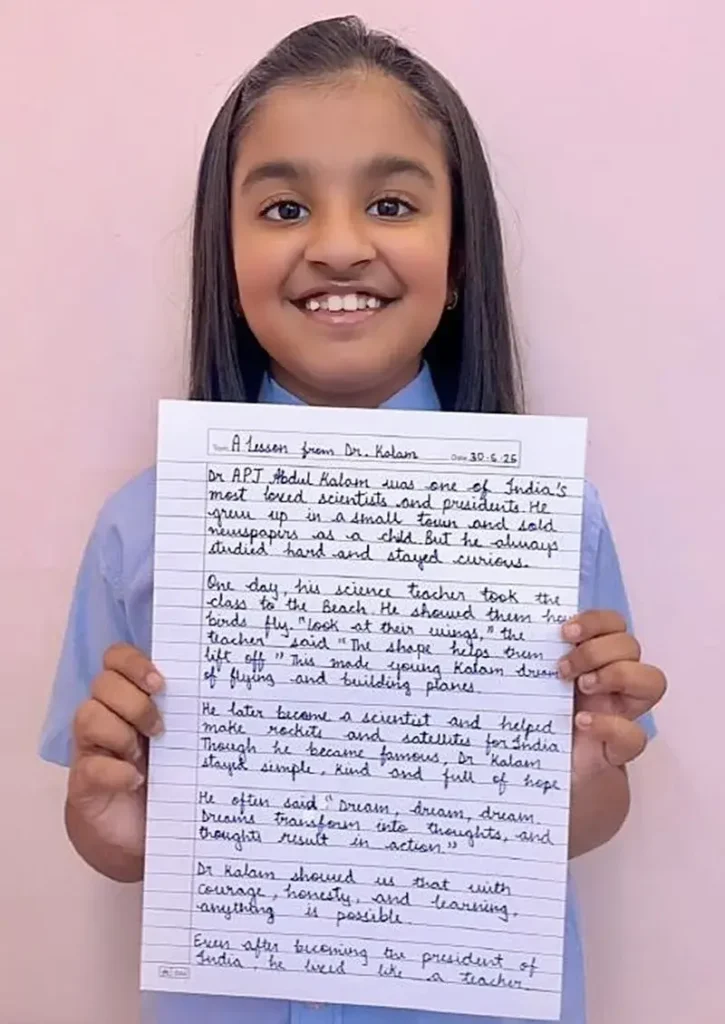 A lesson from Dr. Kalam Date 30-6-25
Dr APJ Abdul Kalam was one of India's
most loved scientists and presidents. He
grew up in a small town and sold
newspapers as a child. But he always
studied hard and stayed curious.
One day, his science teacher took the
class to the Beach. He showed them how
birds fly. "Look at their wings," the
teacher said "The shape helps them
lift off" This made young Kalam dream
of flying and building planes.
He later become a scientist and helped
make rockets and satellites for India
Though he became famous, Dr Kalam
stayed simple, kind and full of hope
He often said "Dream, dream, dream.
Dreams transform into thoughts, and
thoughts result in action."
Dr Kalam showed us that with
courage, honesty, and learning,
anything is possible.
Even after becoming the president of
India, he lived like a teacher.